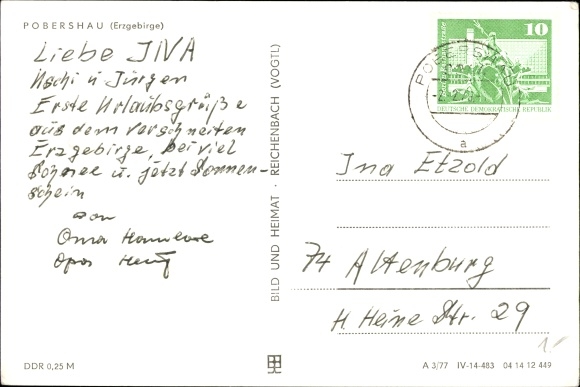 POBERSHAU (Erzgebirge)
Liebe
u Jürgen
Erste Urlaubsgrüße
aus dem verschneiten
Erzgebirge, bei viel
Schnee u. jetzt Sonnen-
schein
von
Oma
Opa
BILD UND HEIMAT · REICHENBACH (VOGTL)
10
DEUTSCHE DEMOKRATISCHE REPUBLIK
POBERSHAU
a
Ina Etzold
74 Altenburg
H Heine Str. 29
DDR 0,25 M
A 3/77 IV-14-483 04 14 12 449